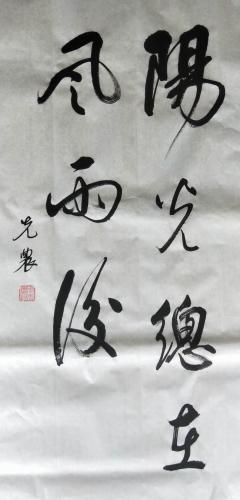 陽光總在
風雨後
克農